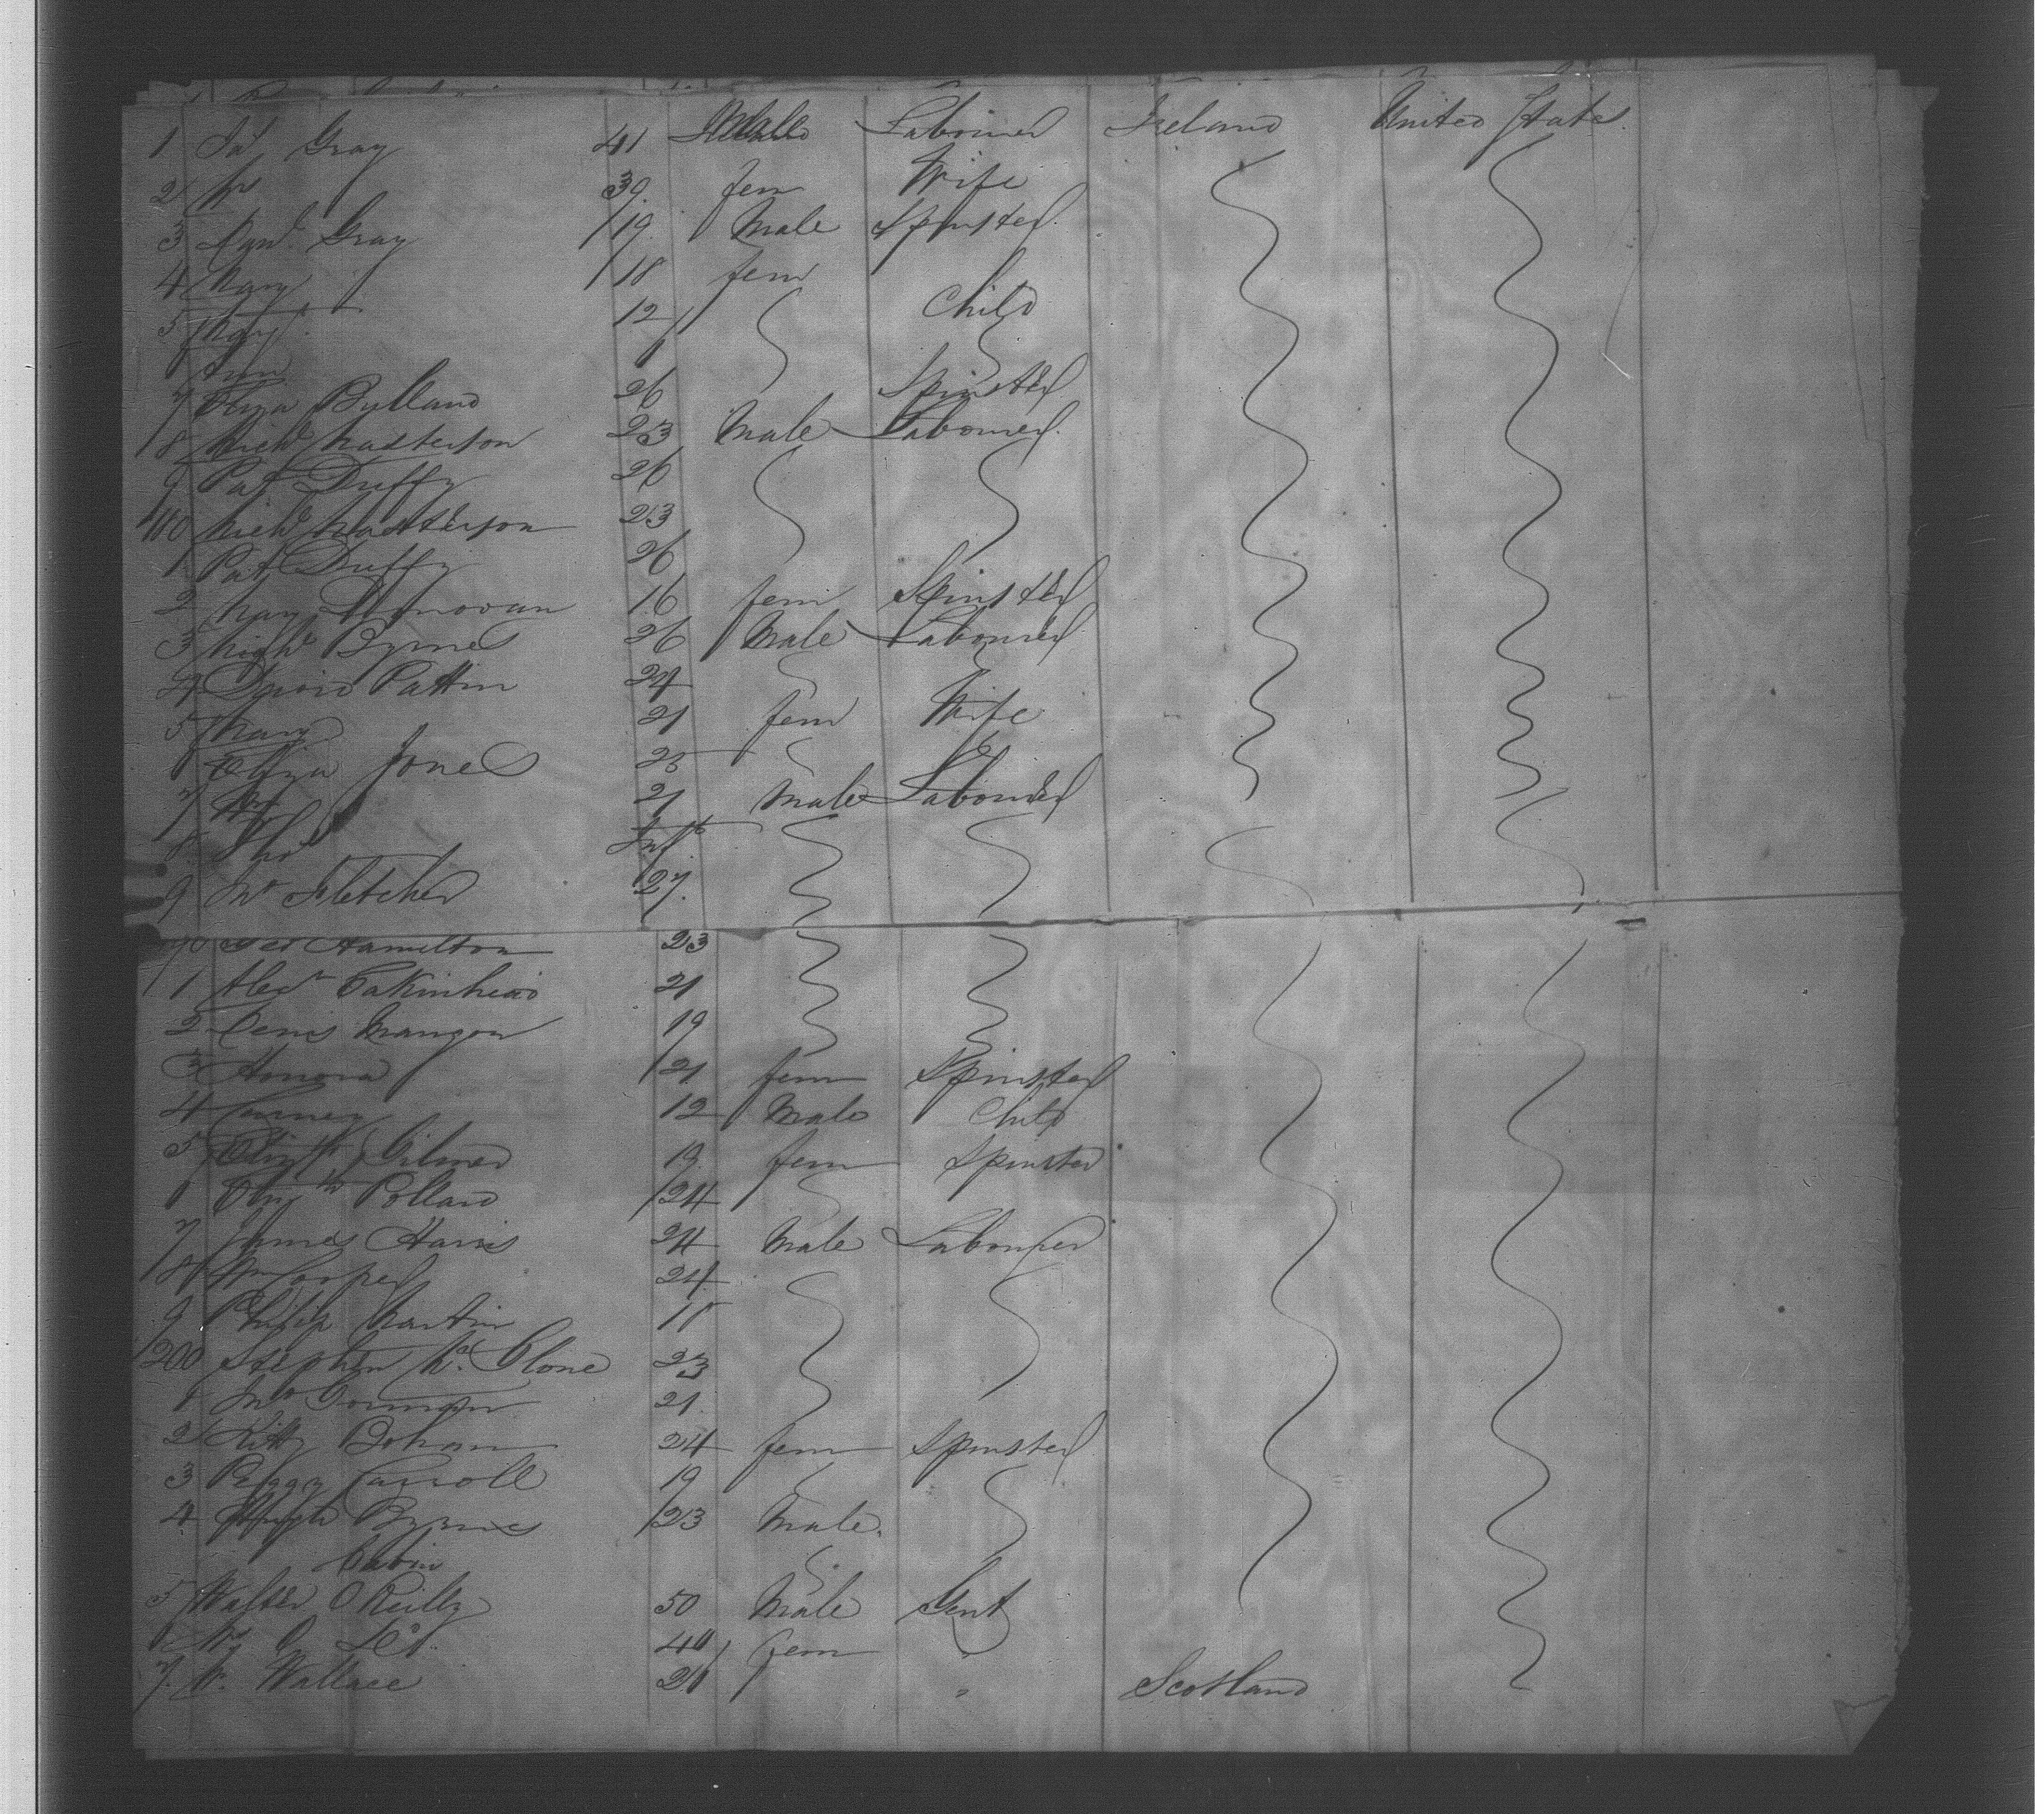 1 Jas Gray 41 Male Labourer Ireland United States.
2 39 fem Wife
3 Gray 19 Male Spinster
4 Mary 18 fem
5 12 Child
6 Ann
7 Eliza Bulland 26 Spinster
8 Michl Masterson 23 Male Labourer
9 Pat Duffy 26
160 Michl Masterson 23
1 Pat Duffy 26
2 Mary Donovan 16 fem Spinster
3 Hugh Byrnes 26 Male Labourer
4 David Pattin 24
5 Mary 21 fem Wife
6 Eliza Jones 25
7 Wm 21 Male Labourer
8 Thos Inft
9 Jno Fletcher 27.
70 Geo Hamilton 23
1 Alexr 21
2 Denis Mangan 19
3 Honora 21 fem Spinster
4 12 Male Child
5 Elizth Gilmer 19 fem Spinster
6 Elizth Pollard 24
7 James Harris 24 Male Labourer
8 Wm Cooper 24
9 Philip Martin 18
200 Stephen Mc Glone 23
1 Jno Gorman 21.
2 Kitty Bohan 24 fem Spinster
3 Peggy Carroll 19
4 Hugh Byrnes 23 Male.
Cabin
5 Walter O Reilly 50 Male Gent
6 Mrs O Do. 40 fem "
7. Wallace 26 " Scotland